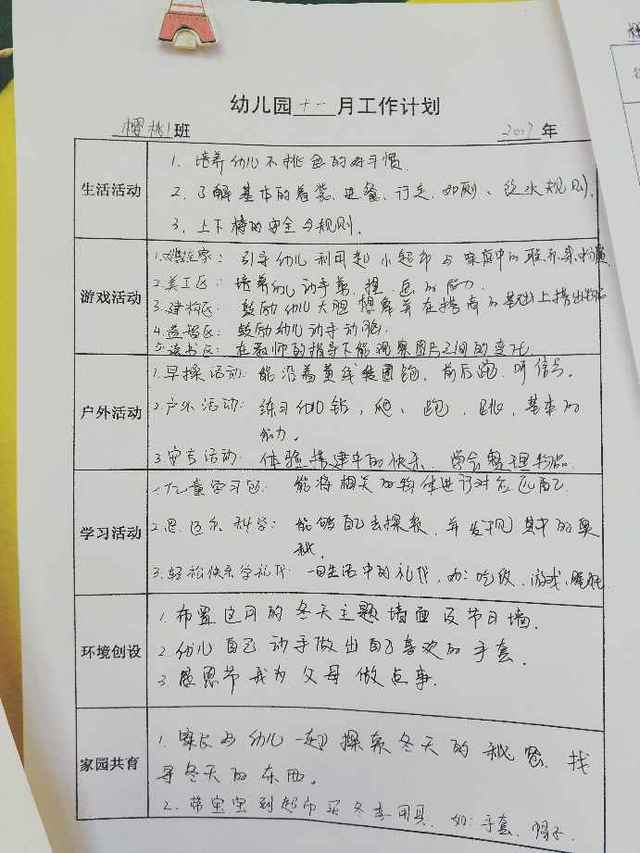 幼儿园十一月工作计划
樱桃1班 2017年
生活活动
1、培养幼儿不挑食的好习惯
2、了解基本的着装、进餐、行走、如厕、饮水规则.
3、上下楼的安全与规则.
游戏活动
1.娃娃家：引导幼儿利用起小超市与家庭中的联系
2.美工区：培养幼儿动手素、捏、画的能力.
3.建构区：鼓励幼儿大胆想象并在搭高的基础上搭出物品
4.益智区：鼓励幼儿动手动脑.
5.读书区：在教师的指导下能观察图片之间的变化
户外活动
1.早操活动：能沿着黄线绕圈跑，前后跑，听信号.
2.户外活动：练习幼儿钻，爬、跑，跳，基本的
能力.
3.室专活动：体验搭建中的快乐，学会整理物品
学习活动
1.儿童学习包：能将相关的物体进行对应匹配
2.思达尔科学：能够自己去探索，并发现其中的奥
秘.
3.轻松快乐学礼仪：日生活中的礼仪，如：吃饭，游戏，睡觉
环境创设
1.布置这月的冬天主题墙面及节日墙.
2.幼儿自己动手做出自己喜欢的手套.
3.感恩节我为父母做点事.
家园共育
1.家长与幼儿一起探索冬天的秘密，找
寻冬天的东西。
2.带宝宝到超市买冬季用具，如：手套、帽子